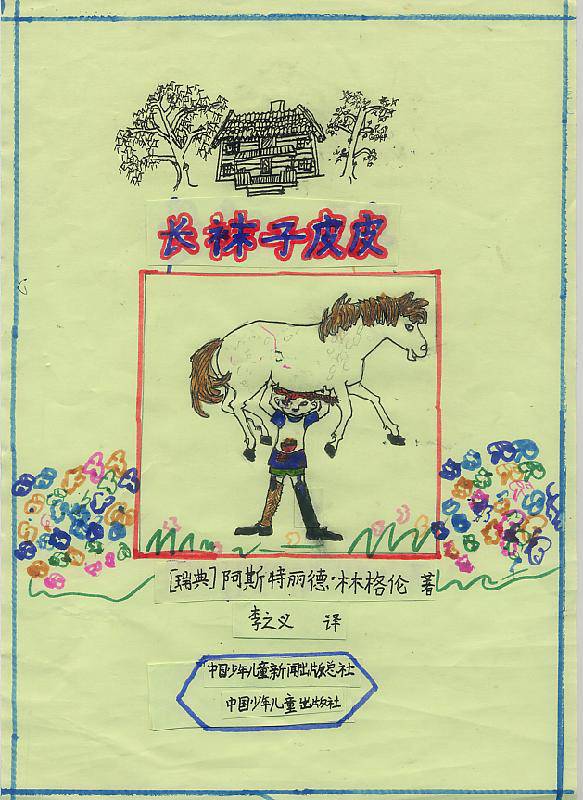 长袜子皮皮
[瑞典]阿斯特丽德·林格伦 著
李之义 译
中国少年儿童新闻出版总社
中国少年儿童出版社